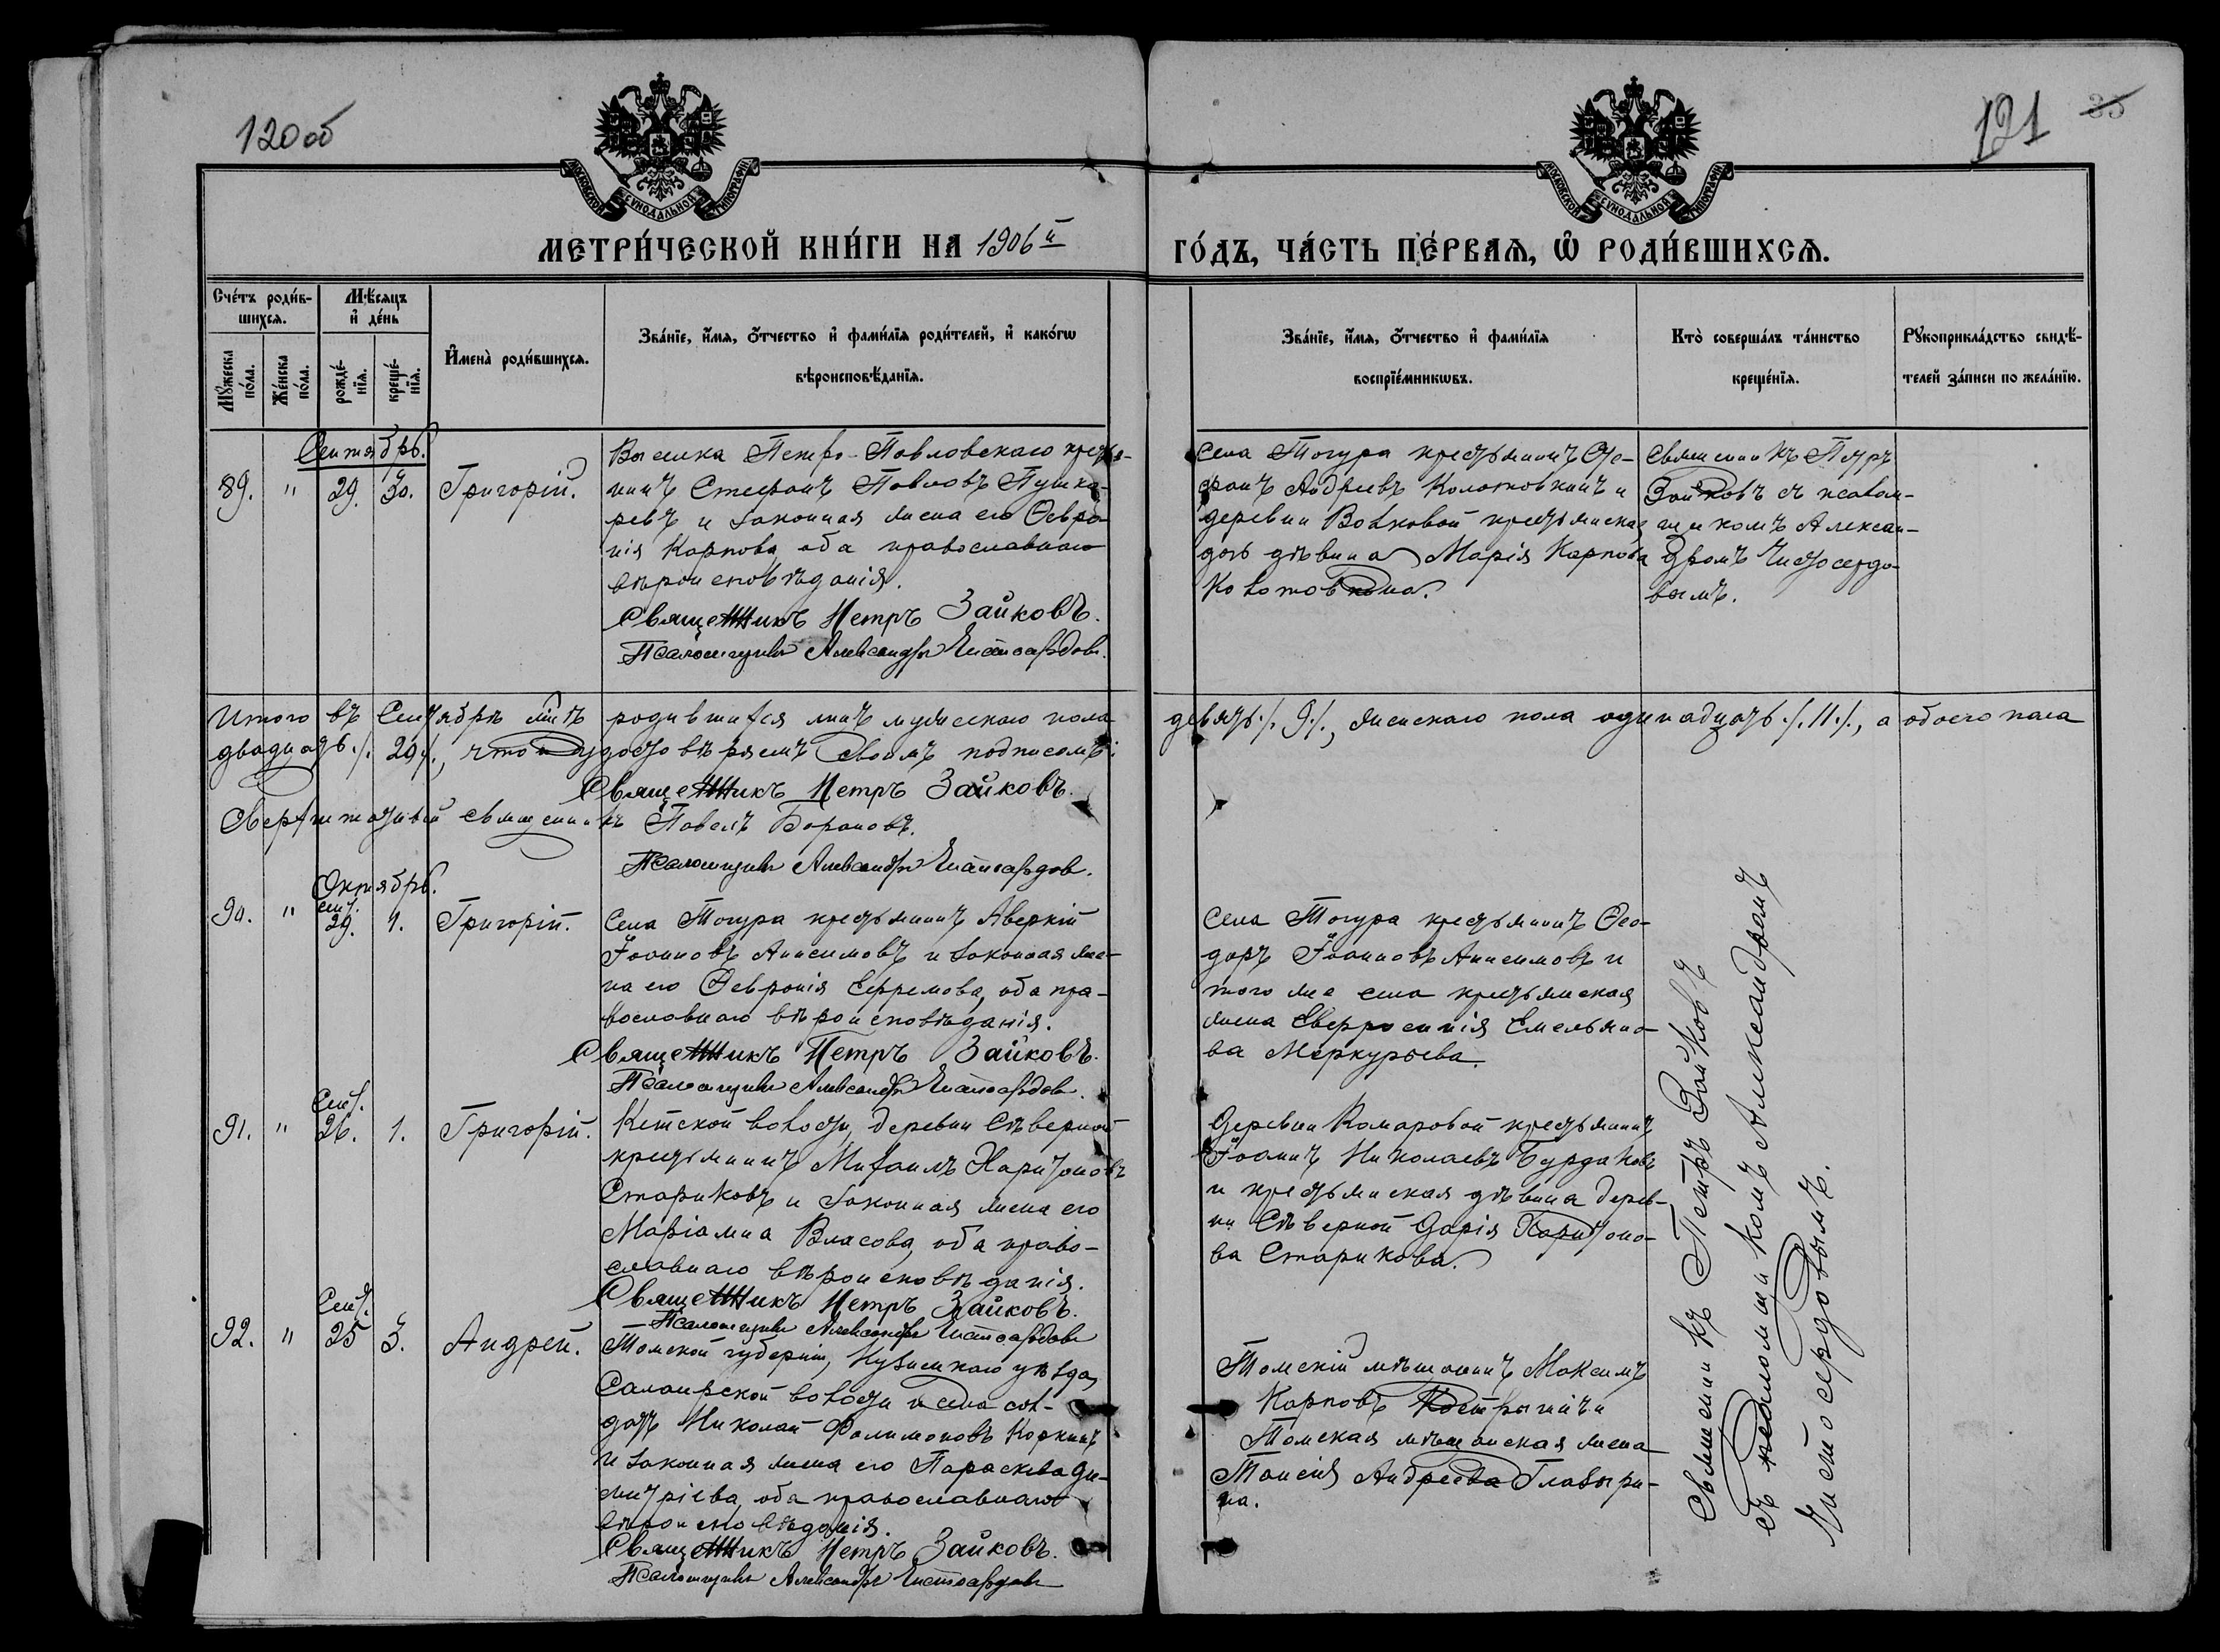 120 об
121
35
МОСКОВСКОЙ СѴНОДАЛЬНОЙ ТИПОГРАФІИ
МОСКОВСКОЙ СѴНОДАЛЬНОЙ ТИПОГРАФІИ
МЕТРИ́ЧЕСКОЙ КНИ́ГИ НА 1906 й
ГО́ДЪ, ЧА́СТЬ ПЕ́РВАѦ, Ѡ҆ РОДИ́ВШИХСѦ.
Сче́тъ роди́в-
шихсѧ.
Мѣ́сѧцъ
и҆ де́нь
Мꙋ́жеска
по́ла.
Же́нска
по́ла.
рожде́-
нїѧ.
креще́-
нїѧ.
И҆мена̀ роди́вшихсѧ.
Зва́нїе, и҆́мѧ, ѻ҆́тчество и҆ фами́лїѧ роди́телей, и҆ како́гѡ
вѣроисповѣ́данїѧ.
Зва́нїе, и҆́мѧ, ѻ҆́тчество и҆ фами́лїѧ
воспрїе́мникѡвъ.
Кто̀ соверша́лъ та́инство
креще́нїѧ.
Рꙋкоприкла́дство свидѣ́-
телей за́писи по жела́нїю.
Сентябрь.
89. " 29. 30. Григорій.
Выселка Петро-Павловскаго кресть-
нинъ Стефанъ Павловъ Пушка-
ревъ и законная жена его Февро-
нія Карпова, оба православнаго
вѣроисповѣданія.
Священникъ Петръ Зайковъ.
Псаломщикъ Александръ Чистосердовъ.
Села Тогура крестьянинъ Сте-
фанъ Андреевъ Колотовкинъ и
деревни Волковой крестьянская
дочь дѣвица Марія Карпова
Колотовкина.
Священникъ Петръ
Зайковъ съ псалом-
щикомъ Алексан-
дромъ Чистосердо-
вымъ.
Итого въ Сентябрѣ м-цѣ родившихся лицъ мужескаго пола девять ./. 9 ./., женскаго пола одинадцать ./. 11 ./., а обоего пола
двадцать ./. 20 ./., что и удостовѣряемъ своимъ подписомъ:
Священникъ Петръ Зайковъ.
Сверхштатный священникъ Павелъ Барановъ.
Псаломщикъ Александръ Чистосердов.
Октябрь.
90. " сент. 29. 1. Григорій.
Села Тогура крестьянинъ Аверкій
Іоанновъ Анисимовъ и законная же-
на его Февронія Ефремова, оба пра-
вославнаго вѣроисповѣданія.
Священникъ Петръ Зайковъ.
Псаломщикъ Александръ Чистосердов.
Села Тогура крестьянинъ Ѳео-
доръ Іоанновъ Анисимовъ и
того же села крестьянская
жена Евфросинія Емельяно-
ва Меркурьева.
91. " Сент. 26. 1. Григорій.
Кетской волости, деревни Сѣверной
крестьянинъ Михаилъ Харитоновъ
Стариковъ и законная жена его
Маріамна Власова, оба право-
славнаго вѣроисповѣданія.
Священникъ Петръ Зайковъ.
Псаломщикъ Александръ Чистосердовъ
Деревни Комаровой крестьянинъ
Іоаннъ Николаевъ Бурдаковъ
и крестьянская дѣвица дерев-
ни Сѣверной Дарія Харитоно-
ва Старикова.
92. " Сент. 25 3. Андрей.
Томской губерніи, Кузнецкаго уѣзда,
Салаирской волости и села сол-
датъ Николай Филимоновъ Коркинъ
и законная жена его Параскева Ди-
митріева, оба православнаго
вѣроисповѣданія.
Священникъ Петръ Зайковъ.
Псаломщикъ Александръ Чистосердовъ
Томскій мѣщанинъ Максимъ
Карповъ и
Томская мѣщанская жена
Таисія Андреева Главыри-
на.
Священникъ Петръ Зайковъ
съ псаломщикомъ Александромъ
Чистосердовымъ.